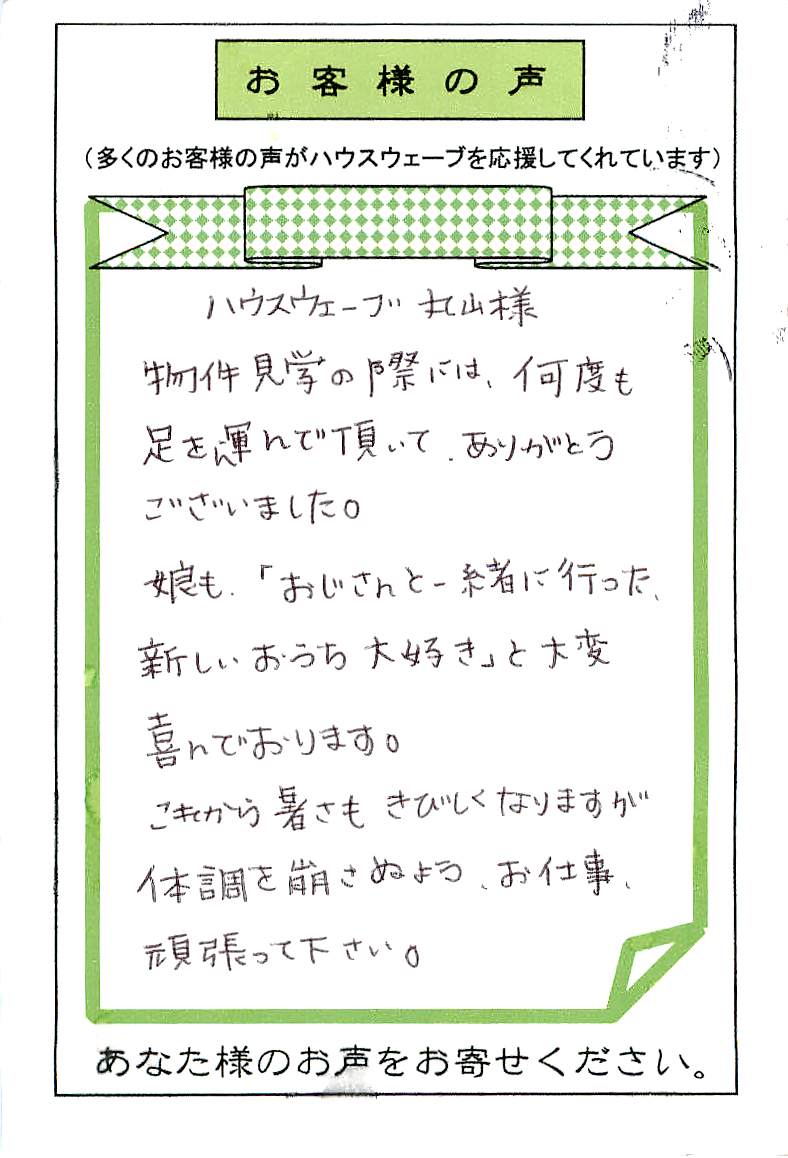 お客様の声
（多くのお客様の声がハウスウェーブを応援してくれています）
ハウスウェーブ 丸山様
物件見学の際には、何度も
足を運んで頂いて、ありがとう
ございました。
娘も、「おじさんと一緒に行った、
新しいおうち大好き」と大変
喜んでおります。
これから暑さもきびしくなりますが
体調を崩さぬよう、お仕事、
頑張って下さい。
あなた様のお声をお寄せください。